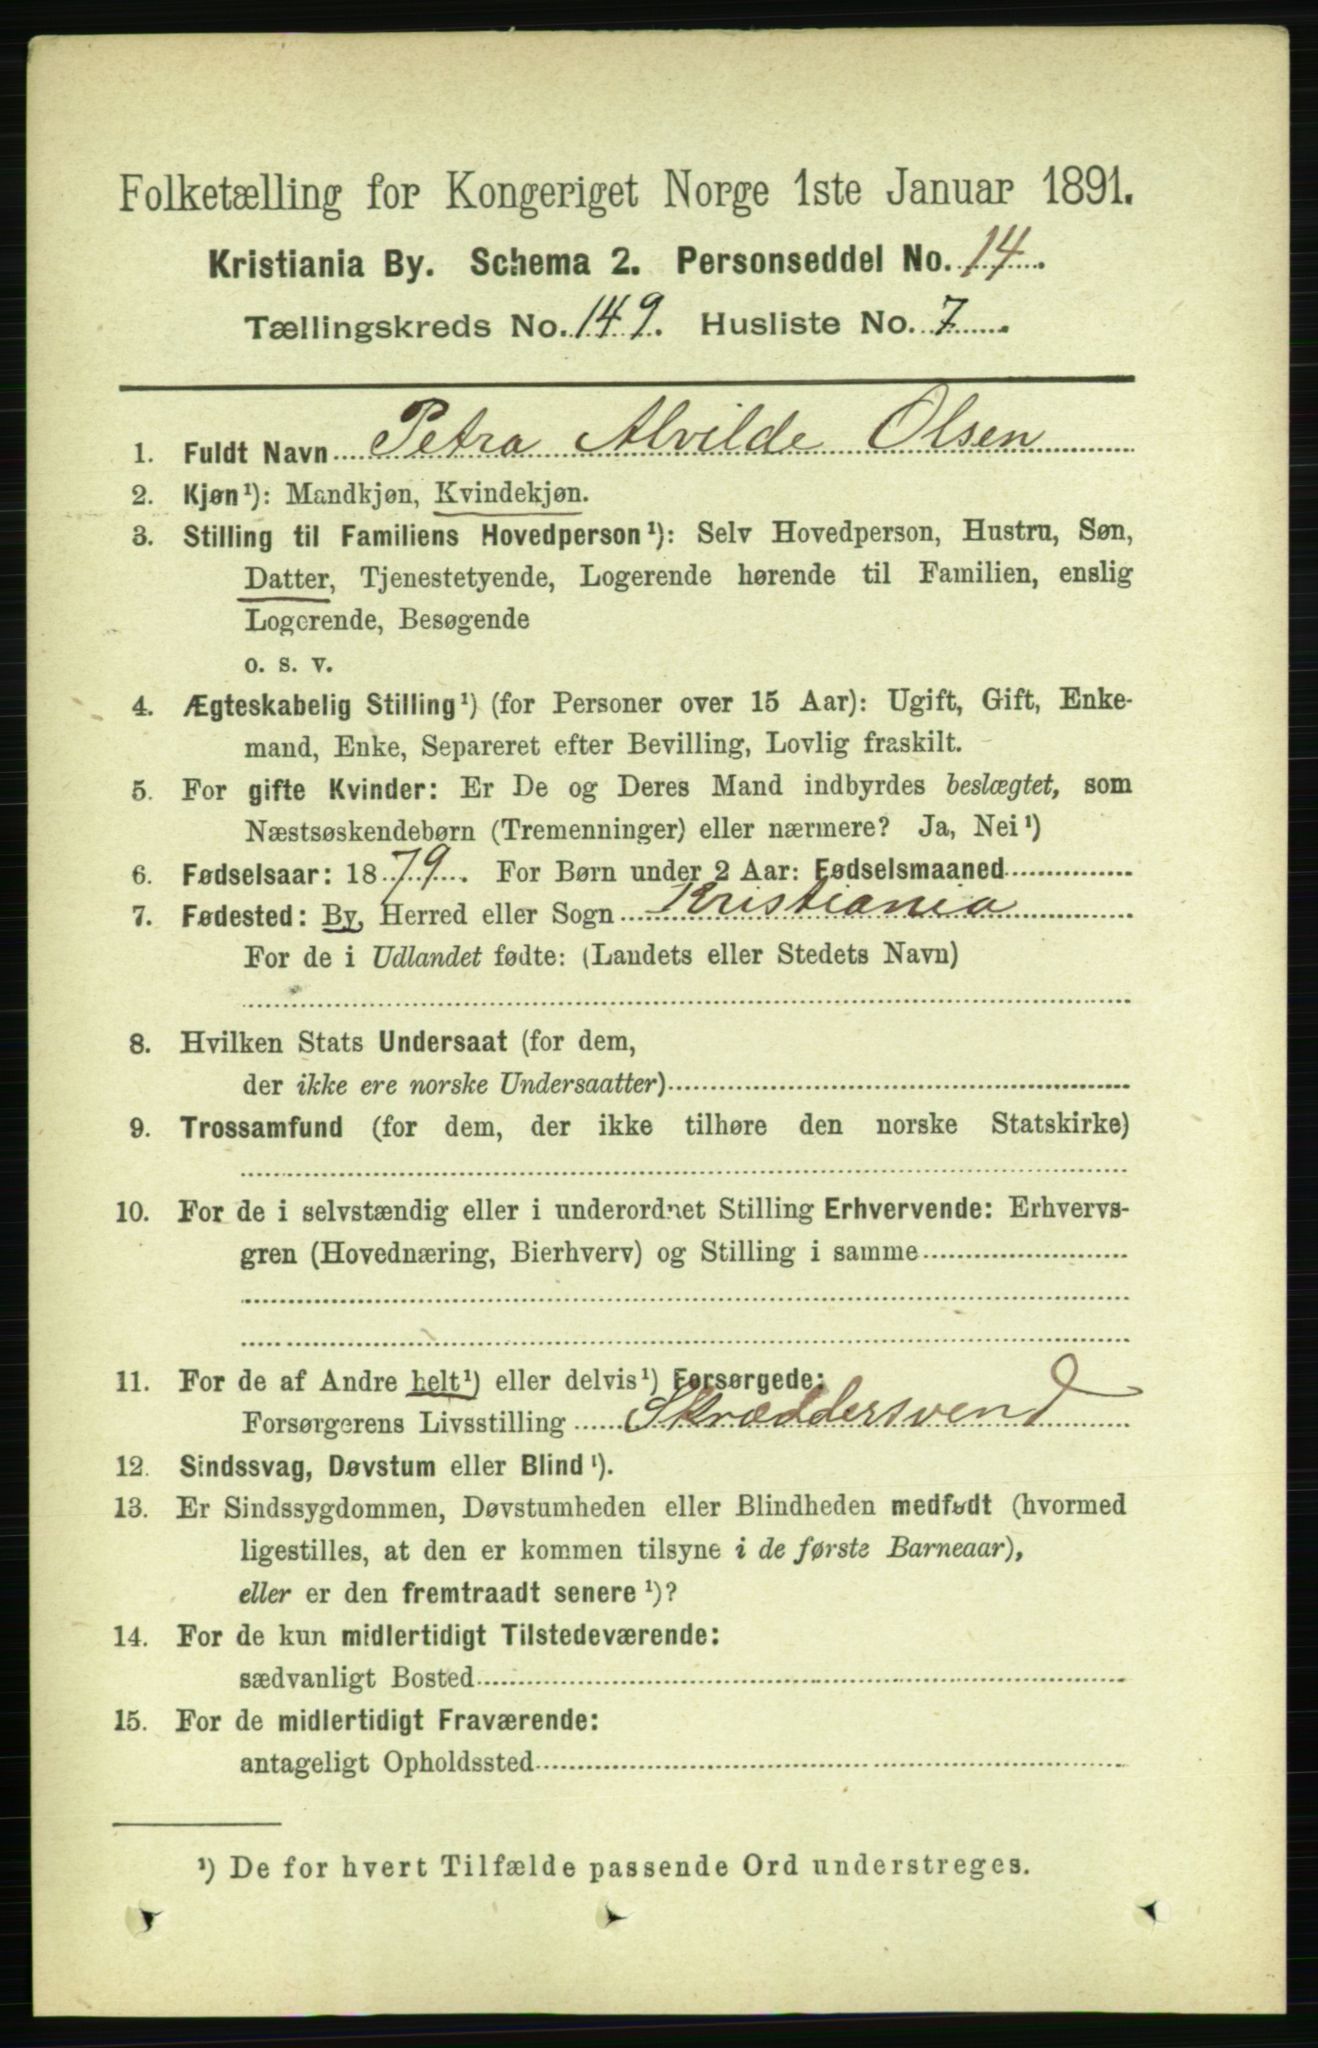 Folketælling for Kongeriget Norge 1ste Januar 1891.
Kristiania By. Schema 2. Personseddel No. 14.
Tællingskreds No. 149. Husliste No. 7.
1. Fuldt Navn Petra Alvilde Olsen
2. Kjøn¹): Mandkjøn, Kvindekjøn.
3. Stilling til Familiens Hovedperson¹): Selv Hovedperson, Hustru, Søn,
Datter, Tjenestetyende, Logerende hørende til Familien, enslig
Logerende, Besøgende
o. s. v.
4. Ægteskabelig Stilling¹) (for Personer over 15 Aar): Ugift, Gift, Enke-
mand, Enke, Separeret efter Bevilling, Lovlig fraskilt.
5. For gifte Kvinder: Er De og Deres Mand indbyrdes beslægtet, som
Næstsøskendebørn (Tremenninger) eller nærmere? Ja, Nei¹)
6. Fødselsaar: 1879. For Børn under 2 Aar: Fødselsmaaned
7. Fødested: By, Herred eller Sogn Kristiania
For de i Udlandet fødte: (Landets eller Stedets Navn)
8. Hvilken Stats Undersaat (for dem,
der ikke ere norske Undersaatter)
9. Trossamfund (for dem, der ikke tilhøre den norske Statskirke)
10. For de i selvstændig eller i underordnet Stilling Erhvervende: Erhvervs-
gren (Hovednæring, Bierhverv) og Stilling i samme
11. For de af Andre helt¹) eller delvis¹) Forsørgede:
Forsørgerens Livsstilling Skræddersvend
12. Sindssvag, Døvstum eller Blind¹).
13. Er Sindssygdommen, Døvstumheden eller Blindheden medfødt (hvormed
ligestilles, at den er kommen tilsyne i de første Barneaar),
eller er den fremtraadt senere¹)?
14. For de kun midlertidigt Tilstedeværende:
sædvanligt Bosted
15. For de midlertidigt Fraværende:
antageligt Opholdssted
¹) De for hvert Tilfælde passende Ord understreges.